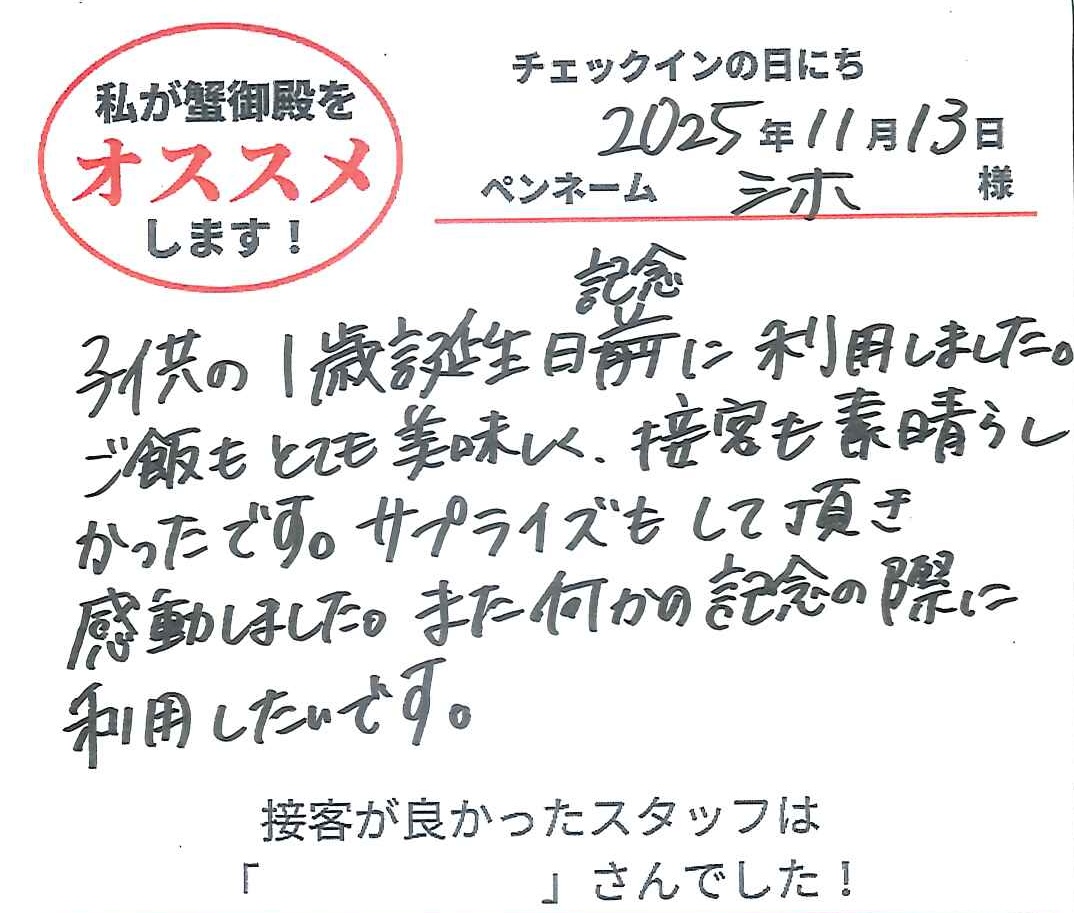 私が蟹御殿を
オススメ
します！
チェックインの日にち
2025年11月13日
ペンネーム シホ 様
記念
子供の1歳誕生日前に利用しました。
ご飯もとても美味しく、接客も素晴らし
かったです。サプライズもして頂き
感動しました。また何かの記念の際に
利用したいです。
接客が良かったスタッフは
「 」さんでした！